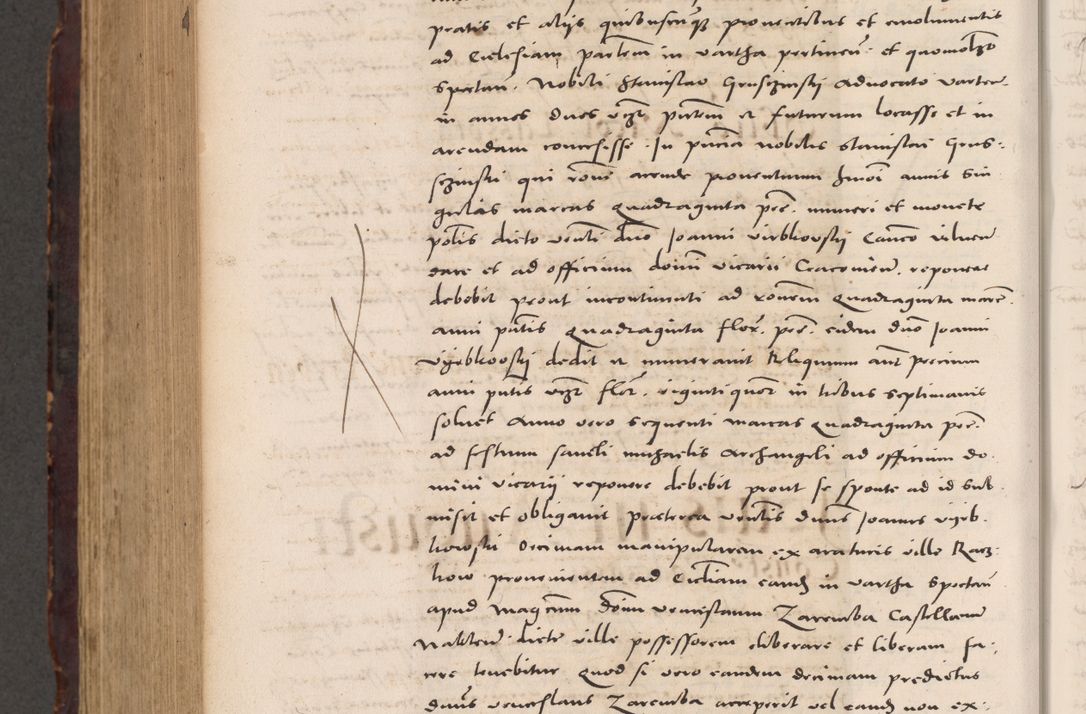 pratis et alijs quibuscunq3 proventibus et emolumentis
ad Ecclesiam partem in vartha pertinen. et quomolbet
spectan. Nobili Stanislao Grusczinskij Advocato varten
in annos duos vzt putem et futurum locasse et in
arendam concessisse. In puncia nobilis stanislai Grus:
sczinski qui roni arende proventuum hmoi annis sin
gulas marcas Quadraginta pee. numeri et monete
polis dicto venli duo Joanni virbkovskij Canco vilnen
dare et ad officium domi vicarii Cracovien. reponere
debebit prout incontinenti ad ronem Quadraginta marc.
anni putis Quadraginta flor. pee. eidem duo Joanni
vyrbkovskij dedit et numeravit Reliquum aut precium
anni putis vzt flor. viginti quor in tribus septimanis
solvet Anno vero sequenti marcas Quadraginta pee.
ad festum sancti michaelis Archangeli ad officium do
mini vicarii reponere debebit prout se sponte ad id sub
misit et obligavit Preterea venlis duns Joannes vyrb.
kowski Decimam manipularem ex araturis ville Racz
kow provenientem ad Eccliam eand in vartha spectan
apud Magcum doim venceslaum Zaremba Castellanu
Naklen. dicte ville possessorem eliberare et liberam fa
cere tenebitur Quod si vero eandem decimam predictus
duns venceslaus Zaremba acceperit vel eand non ex: